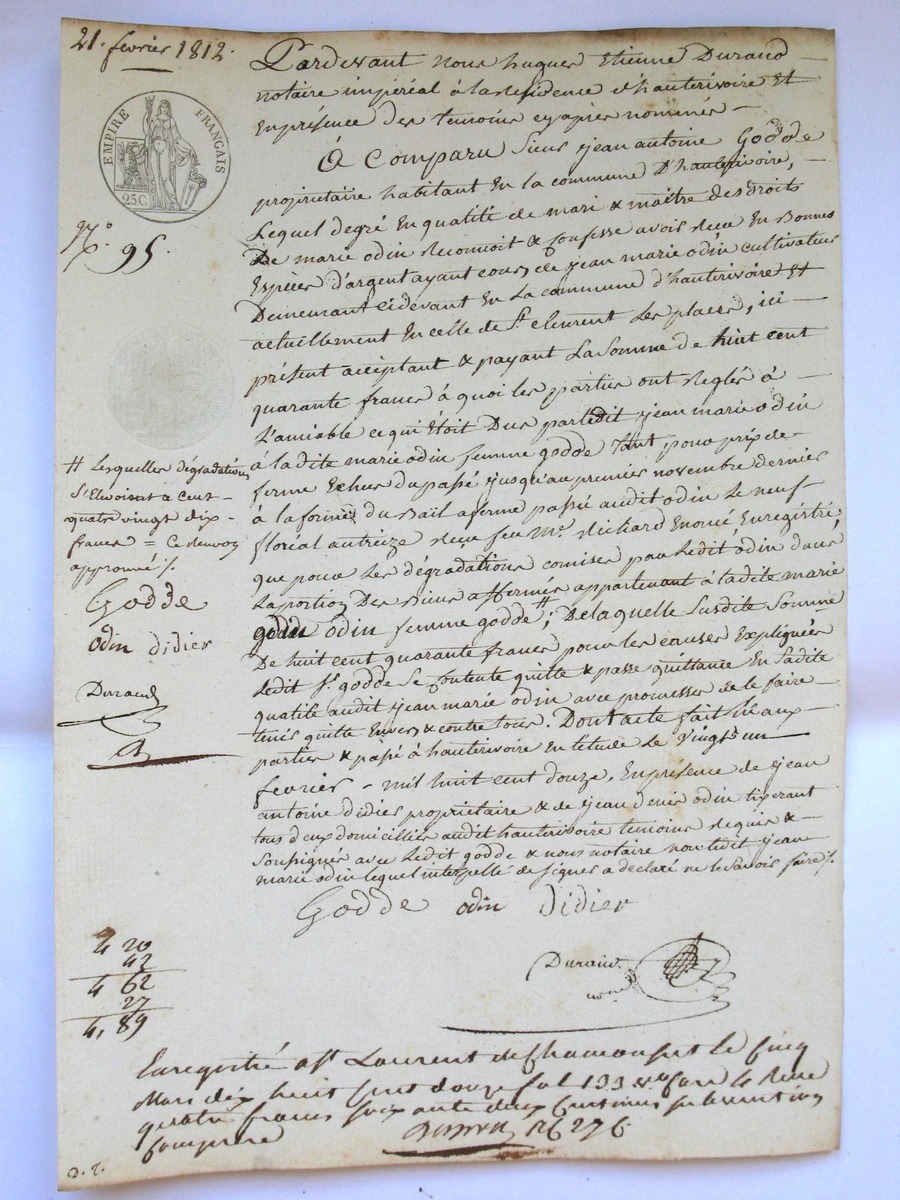 21. fevrier 1812.
EMPIRE FRANÇAIS
25 C.
N.º 95.
Pardevant nous hugues Etienne Durand
notaire impéreal à la residence d'hauterivoire Et
En présence des temoins cy après nommés —
A Comparu Sieur jean antoine Godde
propriétaire habitant En la commune D'hauterivoire, —
Lequel degré En qualité de mari & maître des droits
De marie odin Reconnoit & Confesse avoir recu En Bonnes
Espèces d'argent ayant cours de jean marie odin cultivateur
Demeurant cidevant En La commune d'hauterivoire Et
actuellement En celle de St. clement les places, ici —
présent acceptant & payant La Somme de huit cent
quarante francs à quoi les parties ont Reglés à —
L'amiable ce qui étoit Dus par ledit jean marie odin
à la dite marie odin femme godde tant pour prix de —
ferme Echus du passé jusqu'au premier novembre dernier
à la forme du Bail a ferme passé audit odin Le neuf
floréal an treize recu feu Me. Richard Enoué Enregistré,
que pour Les dégradations comises par Ledit odin dans
La portion Des Biens affermés appartenant à ladite marie
odin femme godde #; De laquelle Susdite Somme
De huit cent quarante francs pour les causes Expliquées
Ledit Sr. godde Se Contente quitte & passe quittance En Sadite
qualité audit jean marie odin avec promesse de le faire —
tenir quitte Envers & contre tous. Dont acte fait Lu aux —
parties & passé à hauterivoire En l'étude Le Vingt un —
fevrier - mil huit cent douze, En présence de jean
antoine didier propriétaire & de jean denis odin tixerant
tous deux domicilliés audit hauterivoire temoins Requis & —
Soussignés avec Ledit godde & nous notaire non Ledit jean
marie odin lequel interpellé de signer a déclaré ne le savoir faire /.
# Lesquelles dégradations
S'Elevoient a Cent —
quatre vingt dix —
francs = Ce Renvoy
approuvé /.
Godde
odin didier
Durand
Godde odin didier
Durand
nore
4 20
42
4 62
27
4, 89
Enregistré a St Laurent de Chamousset le Cinq
Mars dix huit Cent douze fol 133
quatre francs soixante deux Centimes subvention
Comprise
2 276